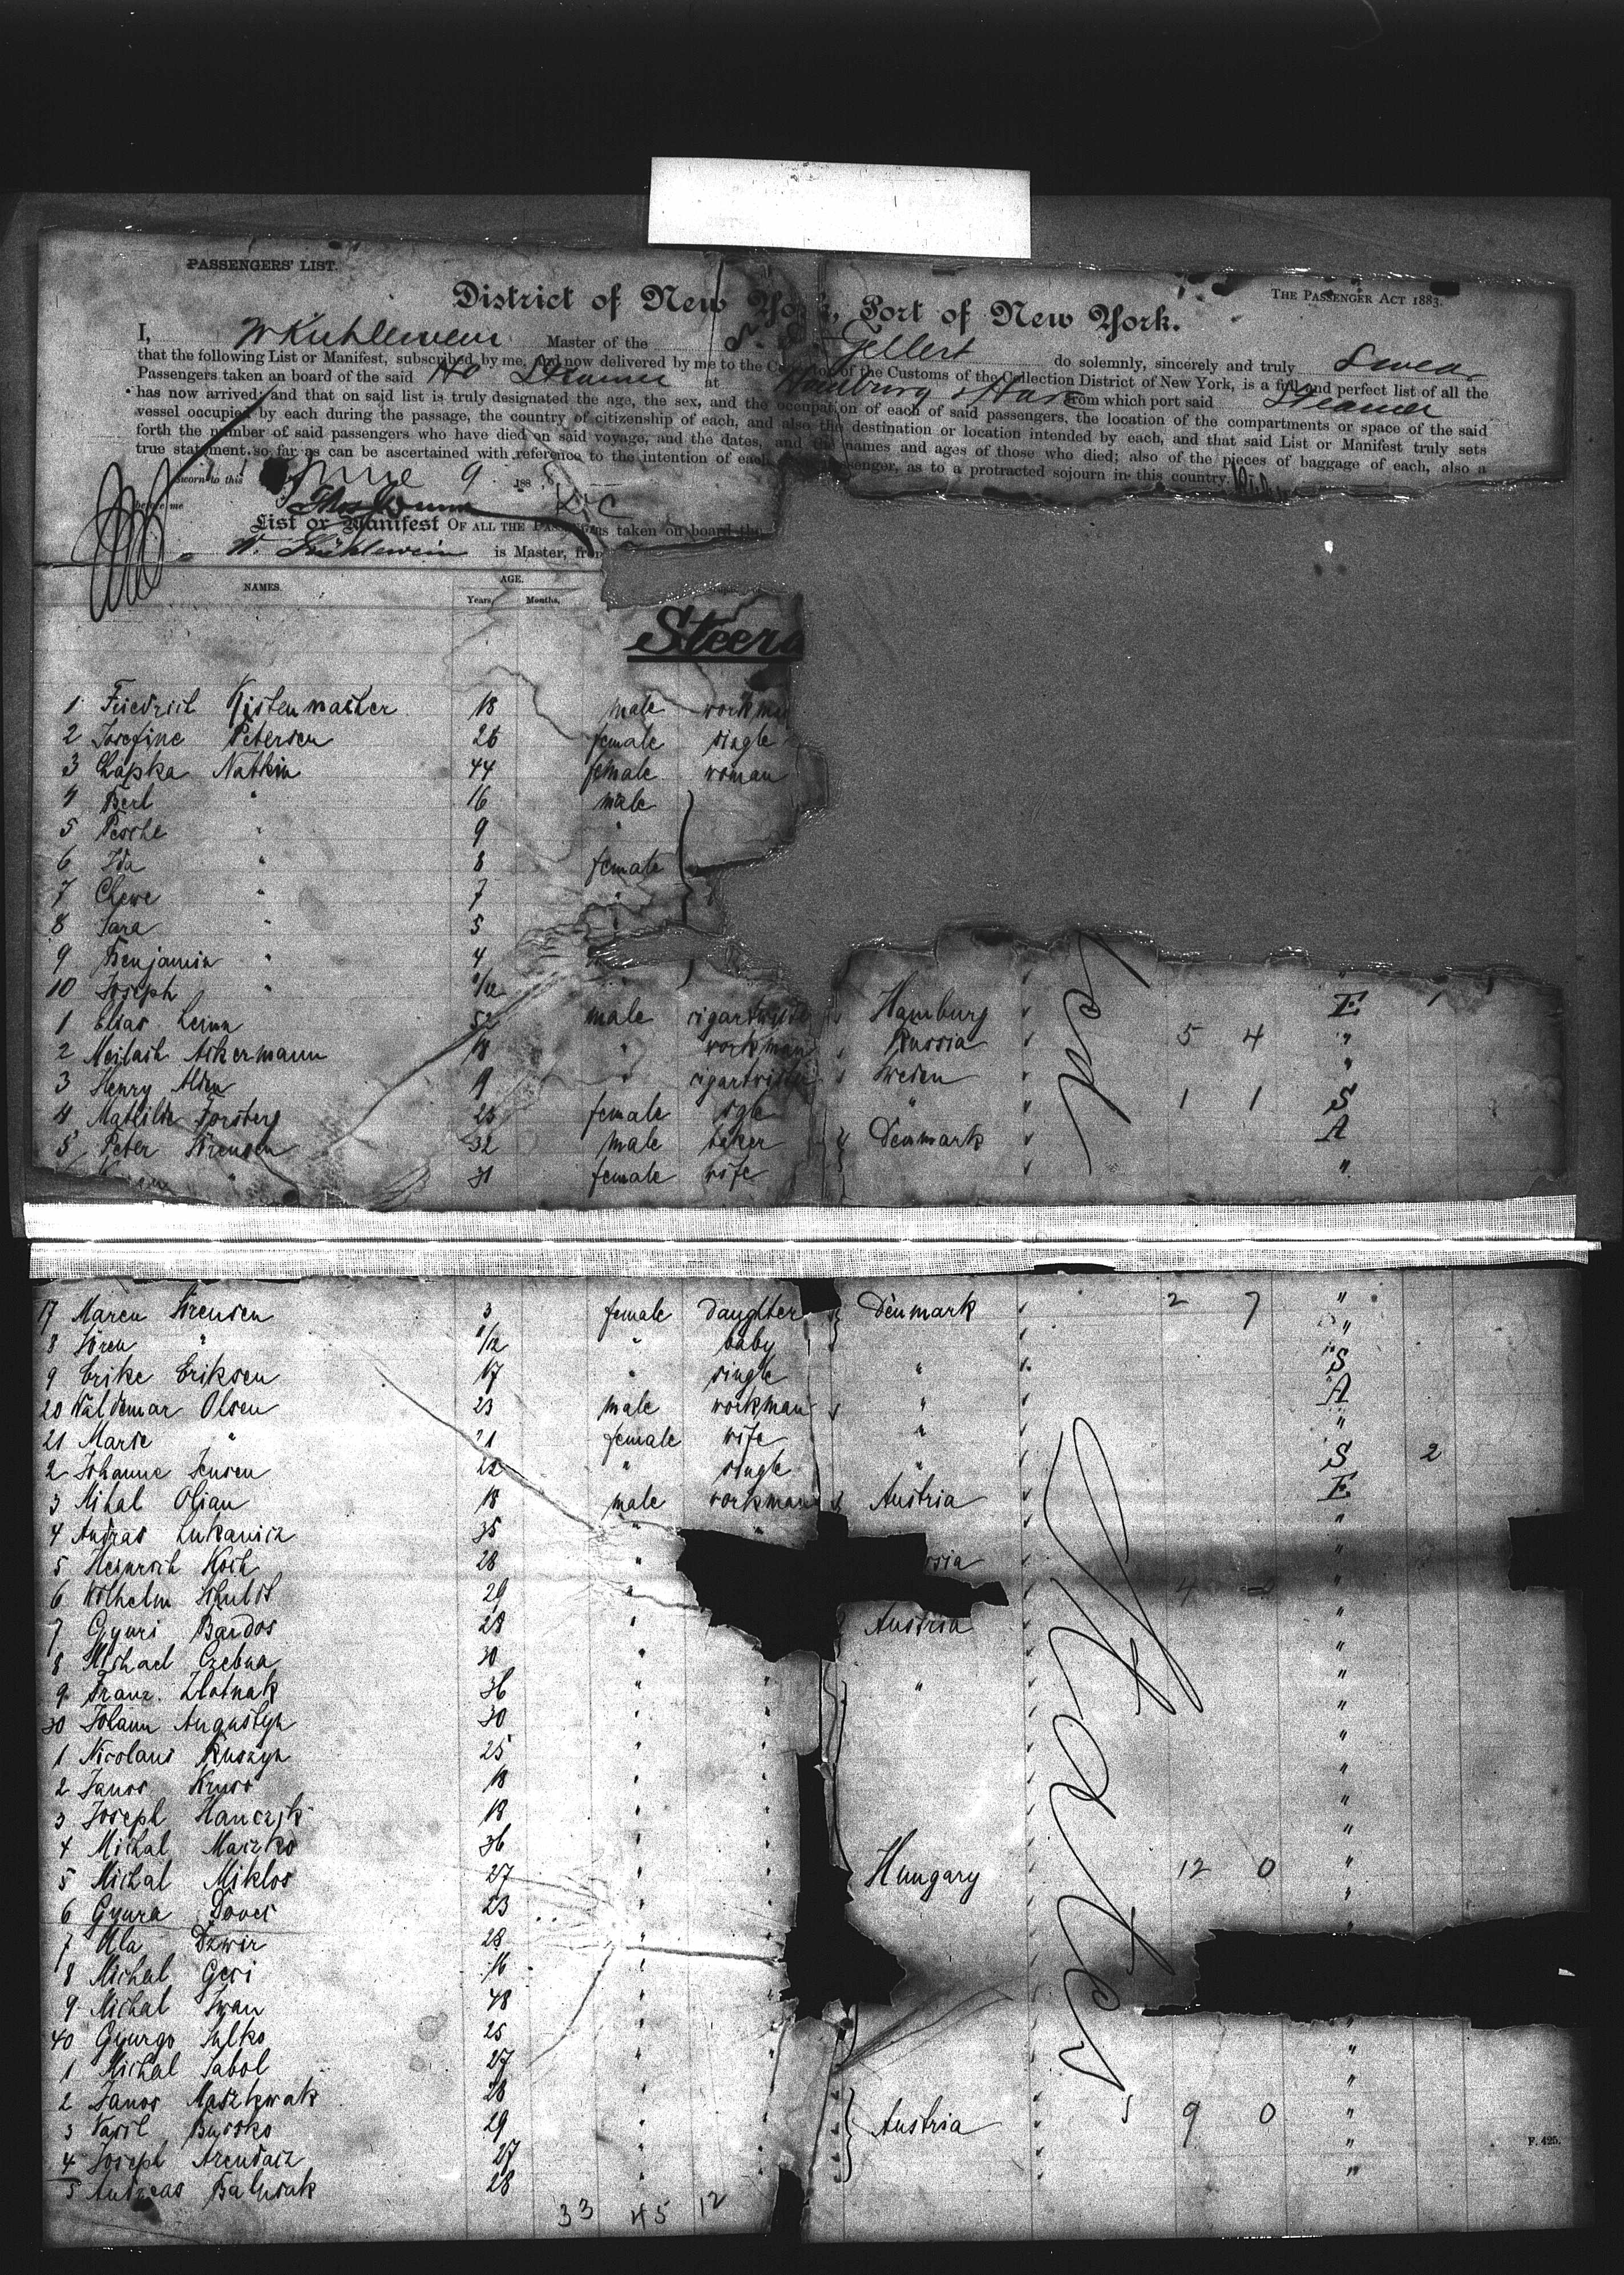 PASSENGERS' LIST.
THE PASSENGER ACT 1883.
District of New York, Port of New York.
I, W Kuhlewein Master of the S. S. Gellert do solemnly, sincerely and truly Swear
that the following List or Manifest, subscribed by me, and now delivered by me to the Collector of the Customs of the Collection District of New York, is a full and perfect list of all the
Passengers taken an board of the said Steamer at Hamburg & Havre from which port said Steamer
has now arrived; and that on said list is truly designated the age, the sex, and the occupation of each of said passengers, the location of the compartments or space of the said
vessel occupied by each during the passage, the country of citizenship of each, and also the destination or location intended by each, and that said List or Manifest truly sets
forth the number of said passengers who have died on said voyage, and the dates, and the names and ages of those who died; also of the pieces of baggage of each, also a
true statement so far as can be ascertained with reference to the intention of each passenger, as to a protracted sojourn in this country.
sworn to this June 9 188
before me
List or Manifest OF ALL THE PASSENGERS taken on board the
W. Kühlewein is Master, from
NAMES. AGE.
Years, Months,
Steera
1 Friedrich Kistenmacher 18 male workman
2 Josefine Petersen 26 female single
3 Chapka Natkin 44 female woman
4 Berl " 16 male
5 Pesche " 9 "
6 Ida " 8 female
7 Chewe " 7 "
8 Sara " 5 "
9 Benjamin " 4
10 Joseph " /12
1 Elias Lewin 52 male Hamburg E
2 Meilach Ackermann 18 " workman Russia 5 4 "
3 Henry 19 " Sweden "
4 Mathilde Forsberg 25 female sgle " 1 1 S
5 Peter Sörensen 32 male baker Denmark A
" 31 female wife "
17 Maren Sörensen 3 female daughter Denmark 2 7 "
8 Sören " /12 " baby "
9 Erike Eriksen 17 " single " S
20 Waldemar Olsen 23 male workman " A
21 Marie " 21 female wife " "
2 Johanne Jensen 22 " single " S 2
3 Mihal Olian 18 male workman Austria E
4 Andras Lukanicz 35 " " "
5 Heinrich Koch 28 " ssia "
6 Wilhelm Schuldt 29 " 4 "
7 Gyuri Bardos 28 " Austria "
8 Michael Czebna 30 " "
9 Franz Zlotnak 36 " " " "
30 Johann Augustyn 30 " " "
1 Nicolaus Ruszyn 25 " " "
2 Janos Kruss 18 " " "
3 Joseph Hanczjk 19 " " "
4 Michal Maczko 36 " " "
5 Michal Miklos 27 " " Hungary 12 0 "
6 Gyura Dovei 23 " " "
7 Ila Dzwir 28 " " "
8 Michal Geci 16 "
9 Michal Iwan 48 " "
40 Gyurgo Sylko 25 " " "
1 Michal Sabol 27 " " "
2 Janos Maszkwak 28 " "
3 Vasil Bussko 29 " " Austria 9 0 "
4 Joseph Arendacz 27 " " "
5 Andreas Balusak 28 " " "
F. 425.
33 45 12